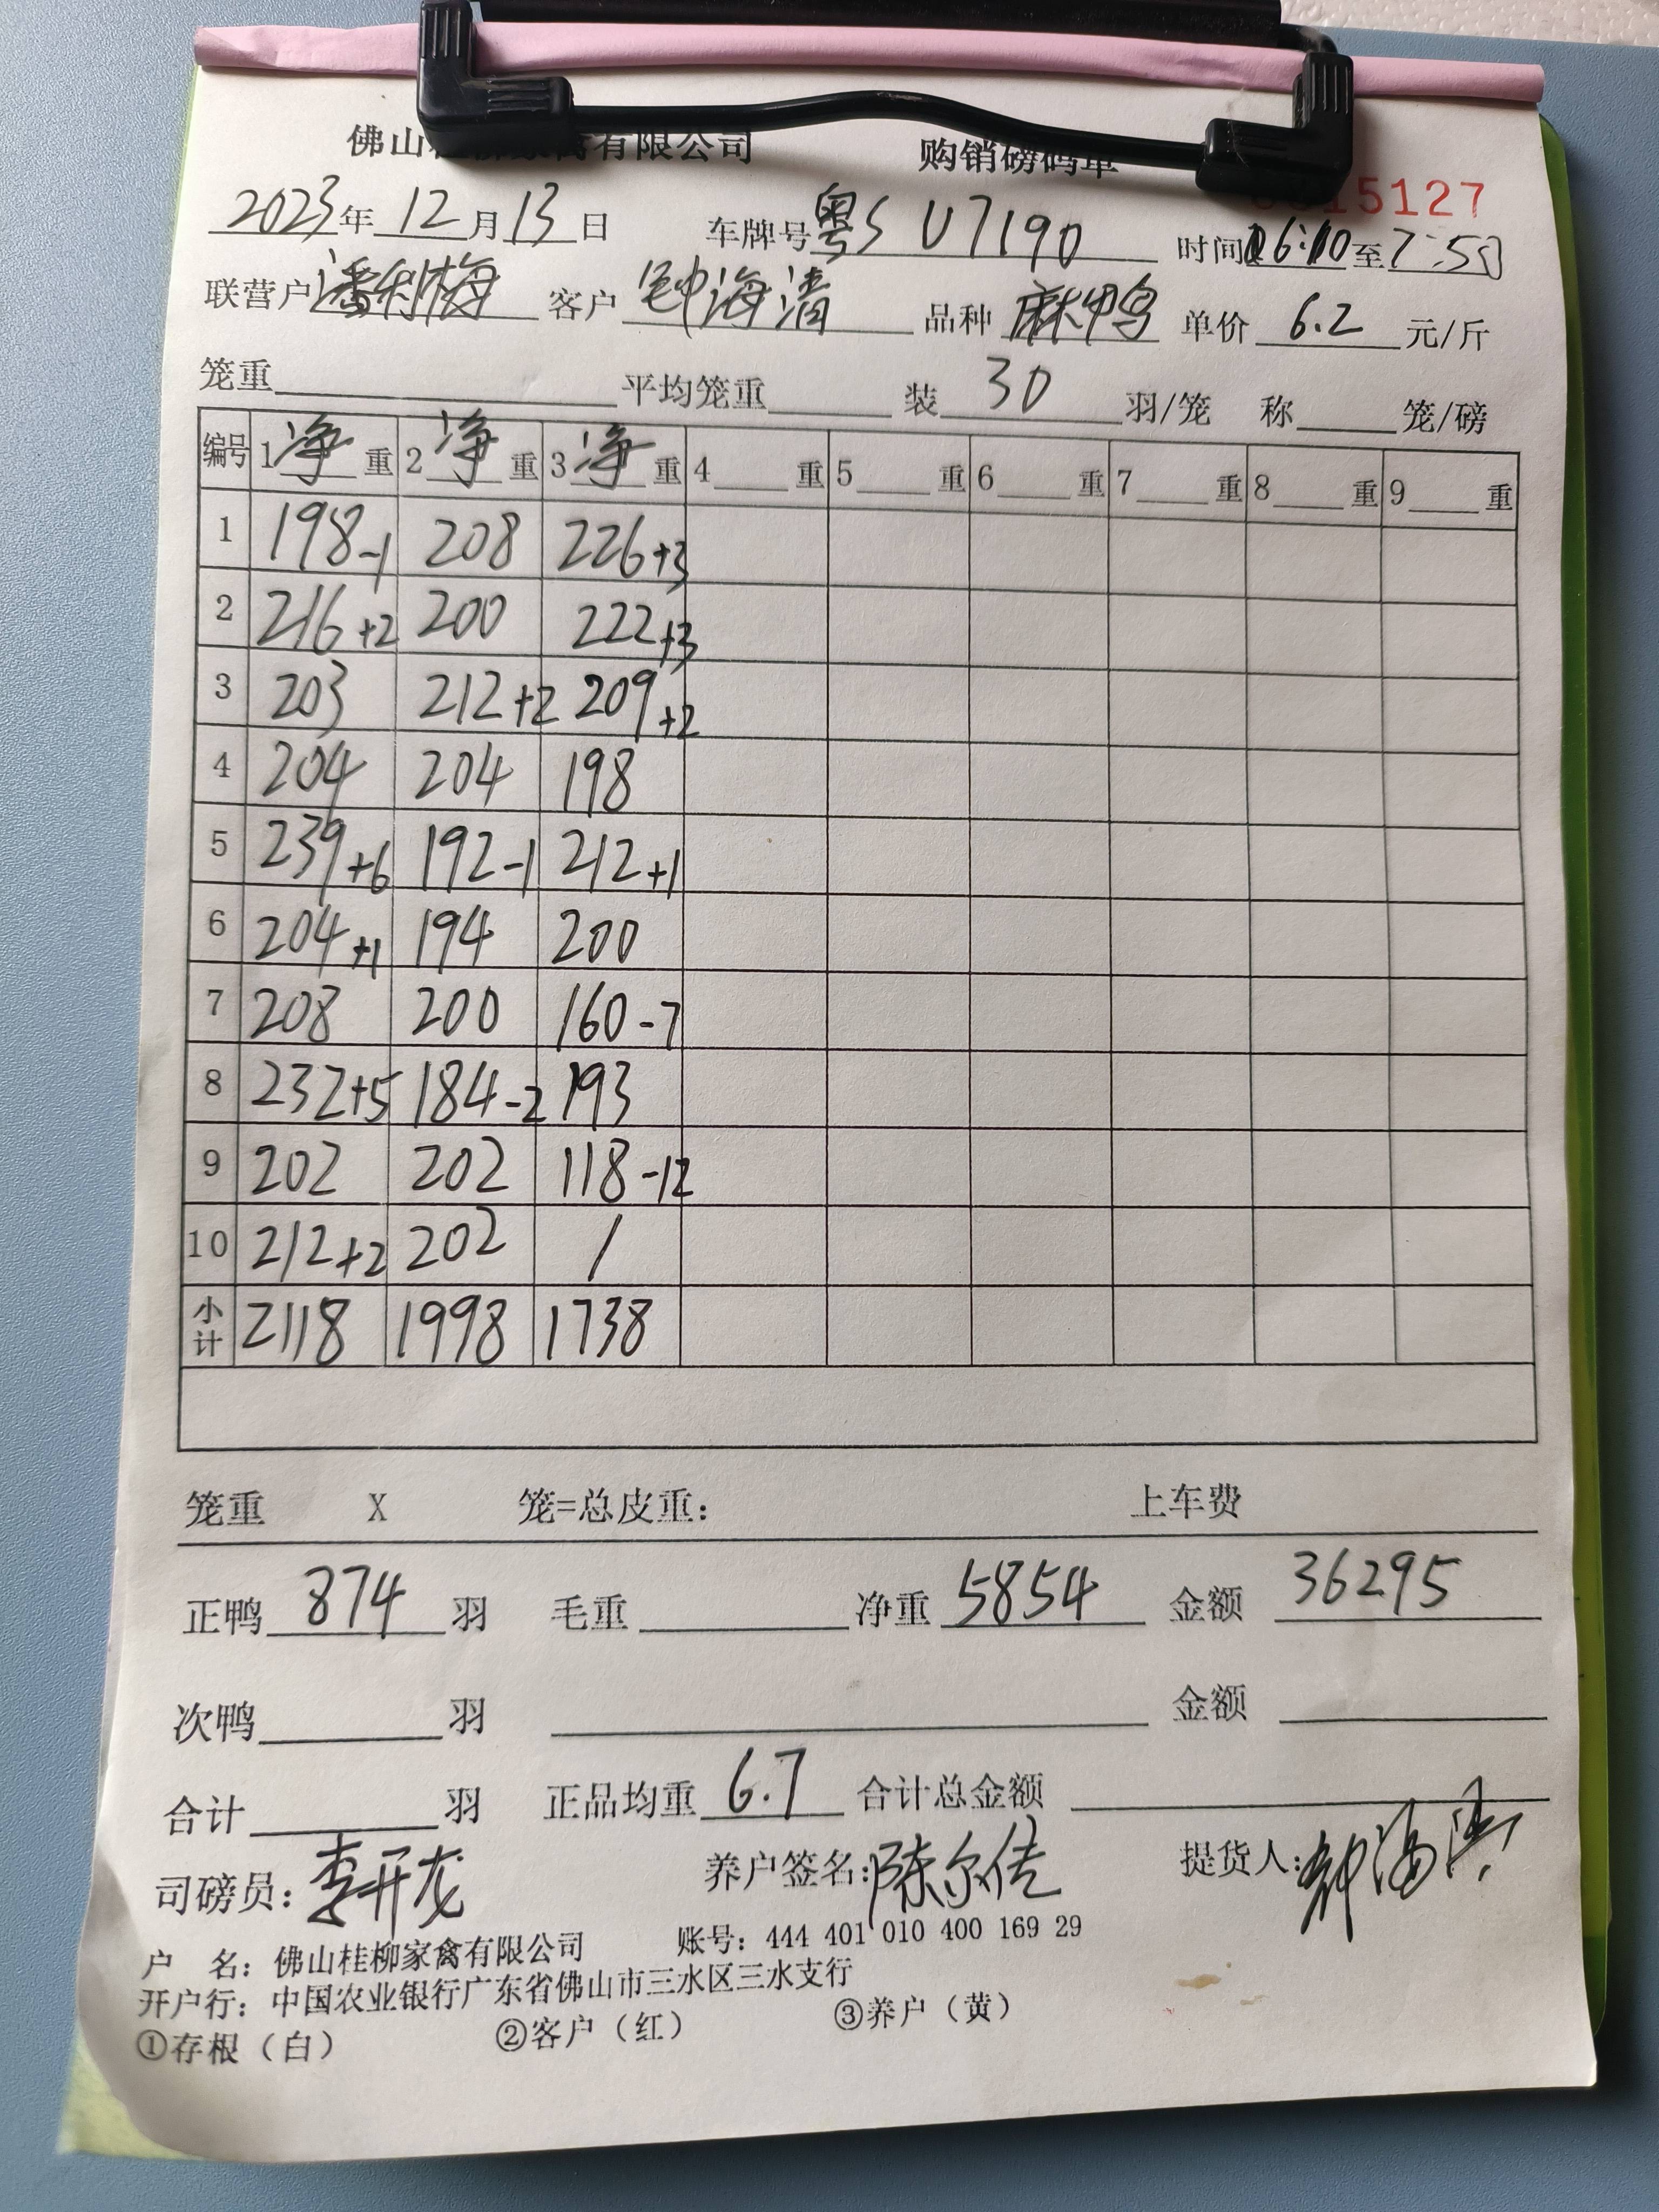 佛山桂柳家禽有限公司 购销磅码单
15127
2023年12月13日 车牌号粤S U7190 时间06:10至7:50
联营户潘利梅 客户钟海清 品种麻鸭 单价6.2元/斤
笼重 平均笼重 装30羽/笼 称 笼/磅
编号 1净重 2净重 3净重 4重 5重 6重 7重 8重 9重
1 198-1 208 226+3
2 216+2 200 222+3
3 203 212+2 209+2
4 204 204 198
5 239+6 192-1 212+1
6 204+1 194 200
7 208 200 160-7
8 232+5 184-2 193
9 202 202 118-12
10 212+2 202 /
小计 2118 1998 1738
笼重 X 笼=总皮重: 上车费
正鸭874羽 毛重 净重5854 金额36295
次鸭 羽 金额
合计 羽 正品均重6.7 合计总金额
司磅员:李开龙 养户签名:陈尔佳 提货人:钟海清
户 名:佛山桂柳家禽有限公司 账号:444 401 010 400 169 29
开户行:中国农业银行广东省佛山市三水区三水支行
①存根(白) ②客户(红) ③养户(黄)